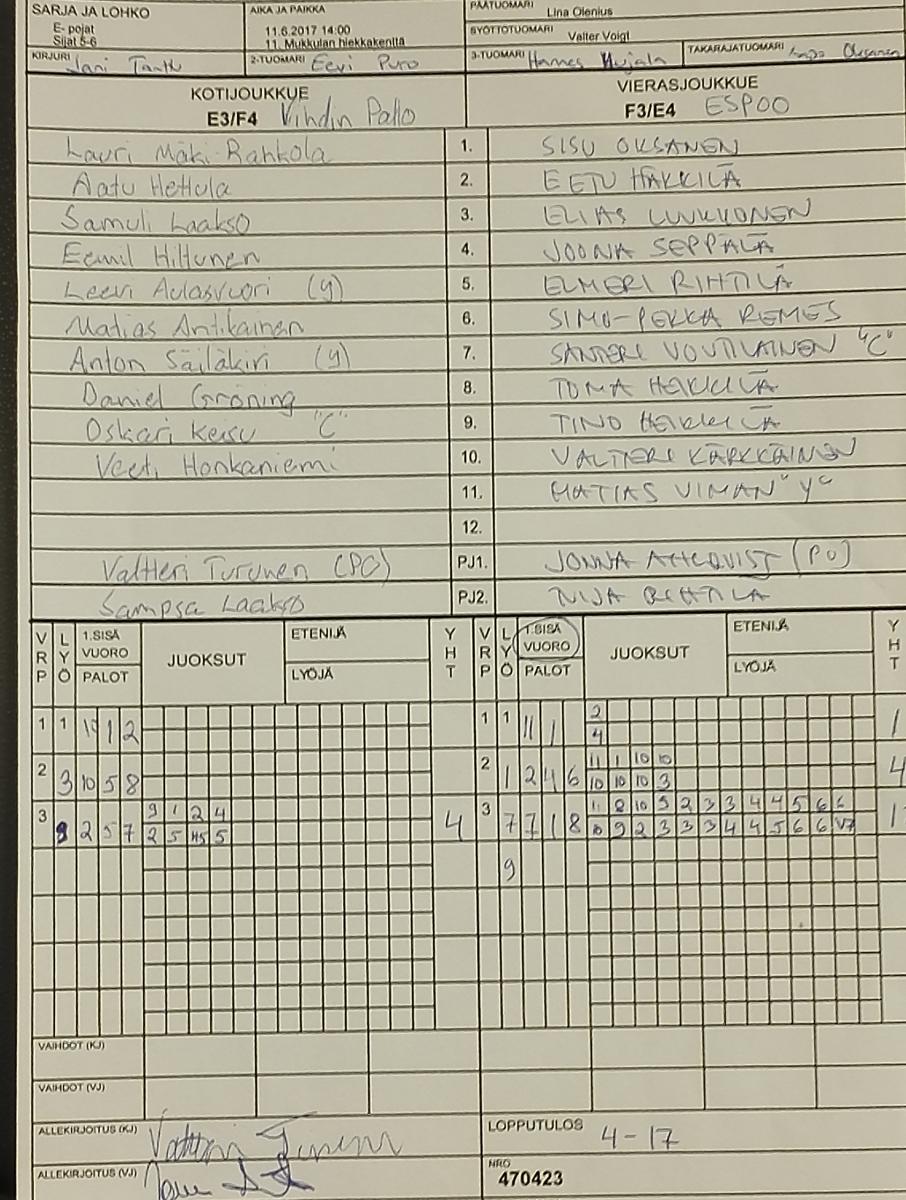 SARJA JA LOHKO AIKA JA PAIKKA PÄÄTUOMARI Lina Olenius
E- pojat 11.6.2017 14:00 SYÖTTÖTUOMARI Valter Voigt
Sijat 5-6 11. Mukkulan hiekkakenttä
KIRJURI Jani 2-TUOMARI Eevi Puro 3-TUOMARI Hannes TAKARAJATUOMARI Oksanen
KOTIJOUKKUE VIERASJOUKKUE
E3/F4 Vihdin Pallo F3/E4 ESPOO
Lauri Mäki-Rahkola 1. SISU OKSANEN
Aatu Hettula 2. EETU HÄKKILÄ
Samuli Laakso 3. ELIAS LUUKKONEN
Eemil Hiltunen 4. JOONA SEPPÄLÄ
Leevi Aulasvuori (y) 5. ELMERI RIHTILÄ
Matias Antikainen 6. SIMO-PEKKA REMES
Anton Säiläkiri (y) 7. SANTERI VOUTILAINEN "C"
Daniel Gröning 8. TOMA HEIKKILÄ
Oskari Keisu "C" 9. TINO HEIKKILÄ
Veeti Honkaniemi 10. VALTTERI KÄRKKÄINEN
11. MATIAS VIMAN "Y"
12.
Valtteri Turunen (PC) PJ1. JONNA AHLQVIST (PO)
Sampsa Laakso PJ2. RIHTILÄ
VRP LYÖ 1.SISÄ VUORO PALOT JUOKSUT ETENIJÄ LYÖJÄ YHT VRP LYÖ 1.SISÄ VUORO PALOT JUOKSUT ETENIJÄ LYÖJÄ YHT
1 1 1 2 1 1 11 1 2 1
4
2 3 10 5 8 2 1 2 4 6 11 1 10 10 4
10 10 10 3
3 2 5 7 9 1 2 4 4 3 7 7 1 8 11 8 10 9 2 3 3 4 4 5 6 6 1
2 5 5 10 9 2 3 3 3 4 4 5 6 6 V7
9
VAIHDOT (KJ)
VAIHDOT (VJ)
ALLEKIRJOITUS (KJ) LOPPUTULOS 4-17
ALLEKIRJOITUS (VJ) NRO 470423